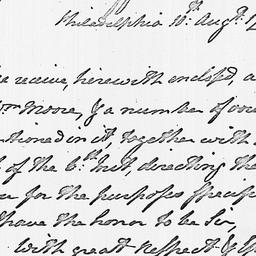 Philadelphia 10th Augt. 1
receive, herewith enclosed, a
Wm Moore, & a number of
tioned in it, together with
of the 6th Inst, directing the
for the purposes specifi
have the honor to be Sir,
With great Respect &